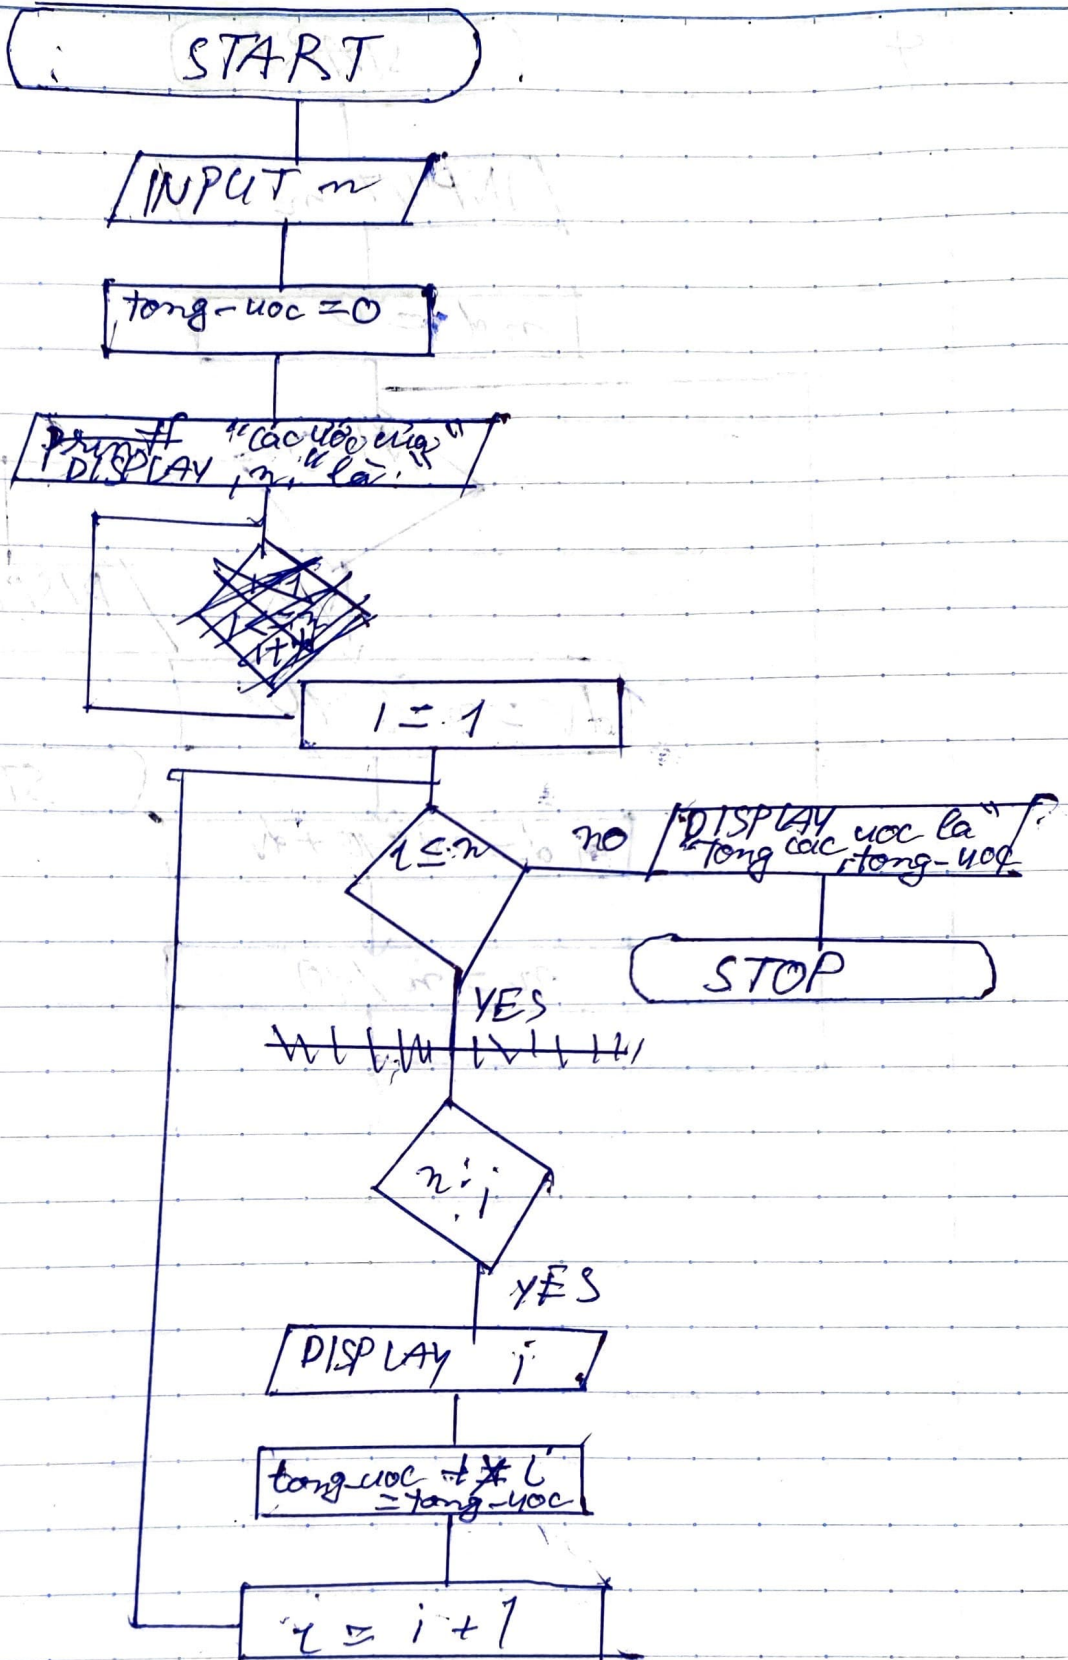 START
INPUT n
tong-uoc = 0
printf "các ước của"
DISPLAY , n, "là:"
i = 1
i ≤ n
no
DISPLAY
"tong các uoc la"
, tong-uoc
STOP
YES
n ⋮ i
YES
DISPLAY i
tong-uoc + i
= tong-uoc
i = i + 1